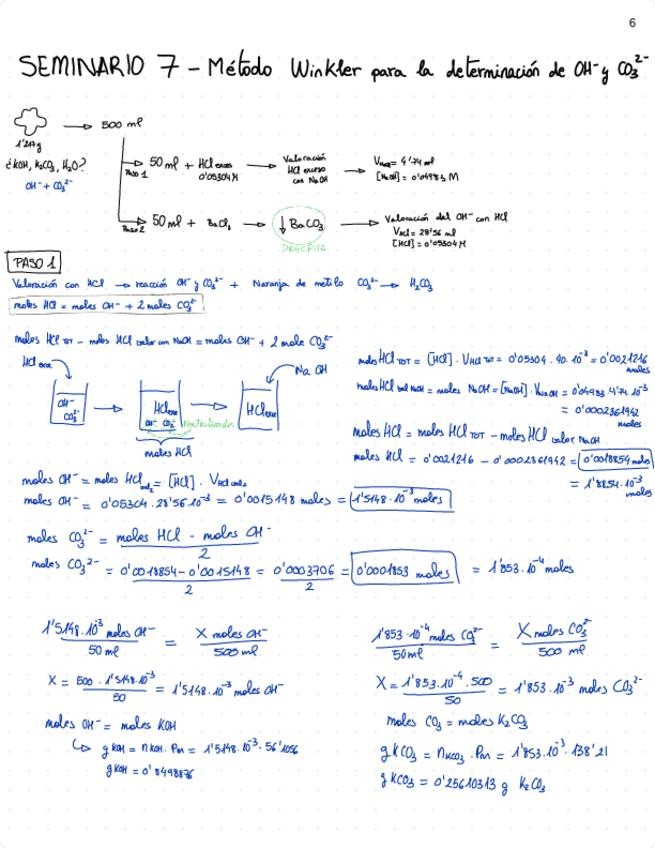 6
SEMINARIO 7 - Método Winkler para la determinación de OH⁻ y CO₃²⁻
500 ml
¿KOH, K₂CO₃, H₂O?
OH⁻ + CO₃²⁻
Paso 1
50 ml + HCl exceso
0'05304 M
Valoración
HCl exceso
con NaOH
V NaOH = 4'74 ml
[NaOH] = 0'04983 M
Paso 2
50 ml + BaCl₂
↓ BaCO₃
PRECIPITA
Valoración del OH⁻ con HCl
V HCl = 28'56 ml
[HCl] = 0'05304 M
PASO 1
Valoración con HCl → reacción OH⁻ y CO₃²⁻ + Naranja de metilo CO₃²⁻ → H₂CO₃
moles HCl = moles OH⁻ + 2 moles CO₃²⁻
moles HCl TOT - moles HCl valor con NaOH = moles OH⁻ + 2 mole CO₃²⁻
HCl exc
OH⁻
CO₃²⁻
HCl exc
OH⁻ CO₃²⁻
moles HCl
NaOH
HCl exc
moles HCl TOT = [HCl] · V HCl TOT = 0'05304 · 40 · 10⁻³ = 0'0021216
moles
moles HCl val NaOH = moles NaOH = [NaOH] · V NaOH = 0'04983 · 4'74 · 10⁻³
= 0'0002361942
moles
moles HCl = moles HCl TOT - moles HCl valor NaOH
moles HCl = 0'0021216 - 0'0002361942 = 0'0018854 moles
= 1'8854 · 10⁻³
moles
moles OH⁻ = moles HCl = [HCl] · V HCl
moles OH⁻ = 0'05304 · 28'56 · 10⁻³ = 0'0015148 moles = 1'5148 · 10⁻³ moles
moles CO₃²⁻ = moles HCl - moles OH⁻ / 2
moles CO₃²⁻ = 0'0018854 - 0'0015148 / 2 = 0'0003706 / 2 = 0'0001853 moles = 1'853 · 10⁻⁴ moles
1'5148 · 10⁻³ moles OH⁻ / 50 ml = X moles OH⁻ / 500 ml
X = 500 · 1'5148 · 10⁻³ / 50 = 1'5148 · 10⁻³ moles OH⁻
moles OH⁻ = moles KOH
↳ g KOH = n KOH · Pm = 1'5148 · 10⁻³ · 56'1056
g KOH = 0'8498876
1'853 · 10⁻⁴ moles CO₃²⁻ / 50 ml = X moles CO₃²⁻ / 500 ml
X = 1'853 · 10⁻⁴ · 500 / 50 = 1'853 · 10⁻³ moles CO₃²⁻
moles CO₃ = moles K₂CO₃
g KCO₃ = n KCO₃ · Pm = 1'853 · 10⁻³ · 138'21
g KCO₃ = 0'25610313 g K₂CO₃